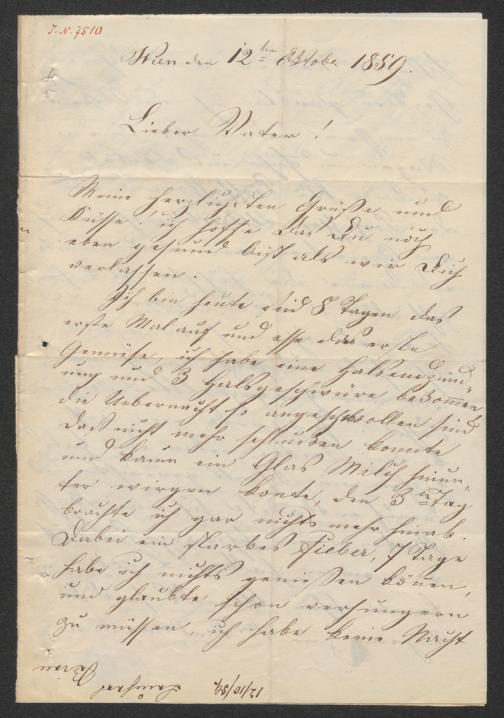 J. N. 7510
Wien den 12ten Oktober 1859.
Lieber Vater!
Meine herzlichsten Grüße und
Küsse! ich hoffe das Du noch
eben gesund bist als wir Dich
verlassen.
Ich bin heute seid 8 Tagen das
erste Mal auf und esse das erste
Gemüse, ich habe eine Halsentzünd-
ung und 3 Halsgeschwüre bekommen,
die Uebernacht so angeschwollen sind
daß nicht mehr schlucken konnte
und kaum ein Glas Milch hinun-
ter würgen konte, den 3ten Tag
brachte ich gar nichts mehr hinab.
Dabei ein starkes Fieber, 7 Tage
habe ich nichts genießen können,
und glaubte schon verhungern
zu müssen, ich habe keine Nacht
12/10/59